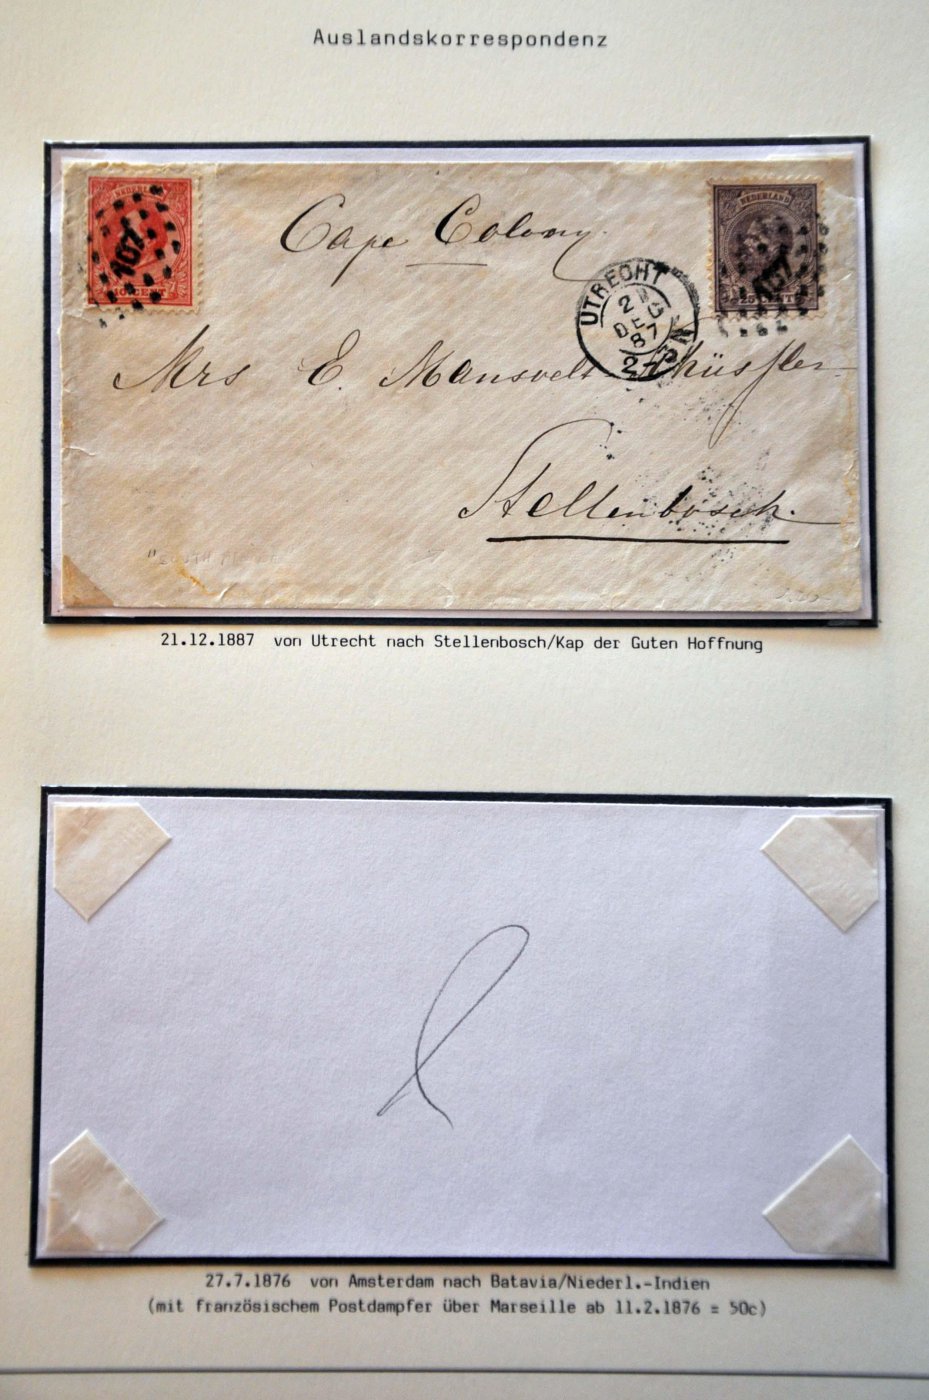 Auslandskorrespondenz
NEDERLAND
107
10 CENT
Cape Colony.
NEDERLAND
107
25 CENT
UTRECHT
DEC
87
2-3N
Mrs E. Mansvelt
Stellenbosch.
21.12.1887 von Utrecht nach Stellenbosch/Kap der Guten Hoffnung
27.7.1876 von Amsterdam nach Batavia/Niederl.-Indien
(mit französischem Postdampfer über Marseille ab 11.2.1876 = 50c)